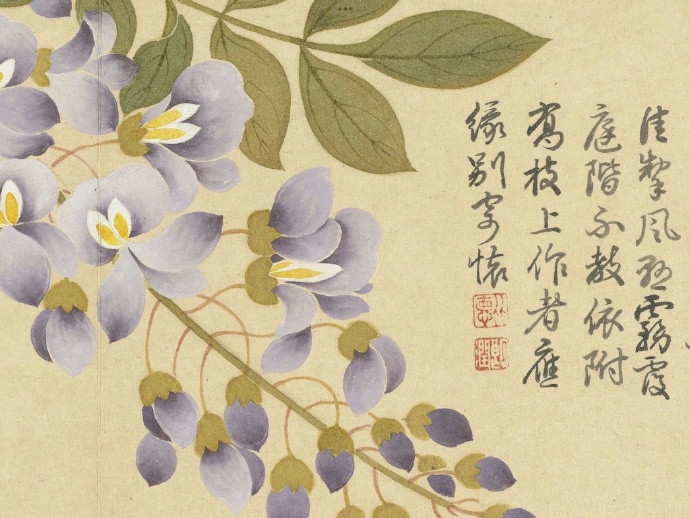 佳風霧霞
庭階不教依附
高枝上作者應
緣別寄懷